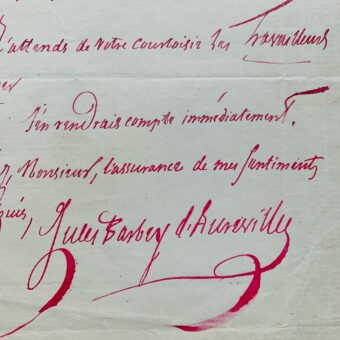 J'attends de votre courtoisie Les Travailleurs
J'en rendrais compte immédiatement.
Monsieur, l'assurance de mes sentiments
Jules Barbey d'Aurevilly